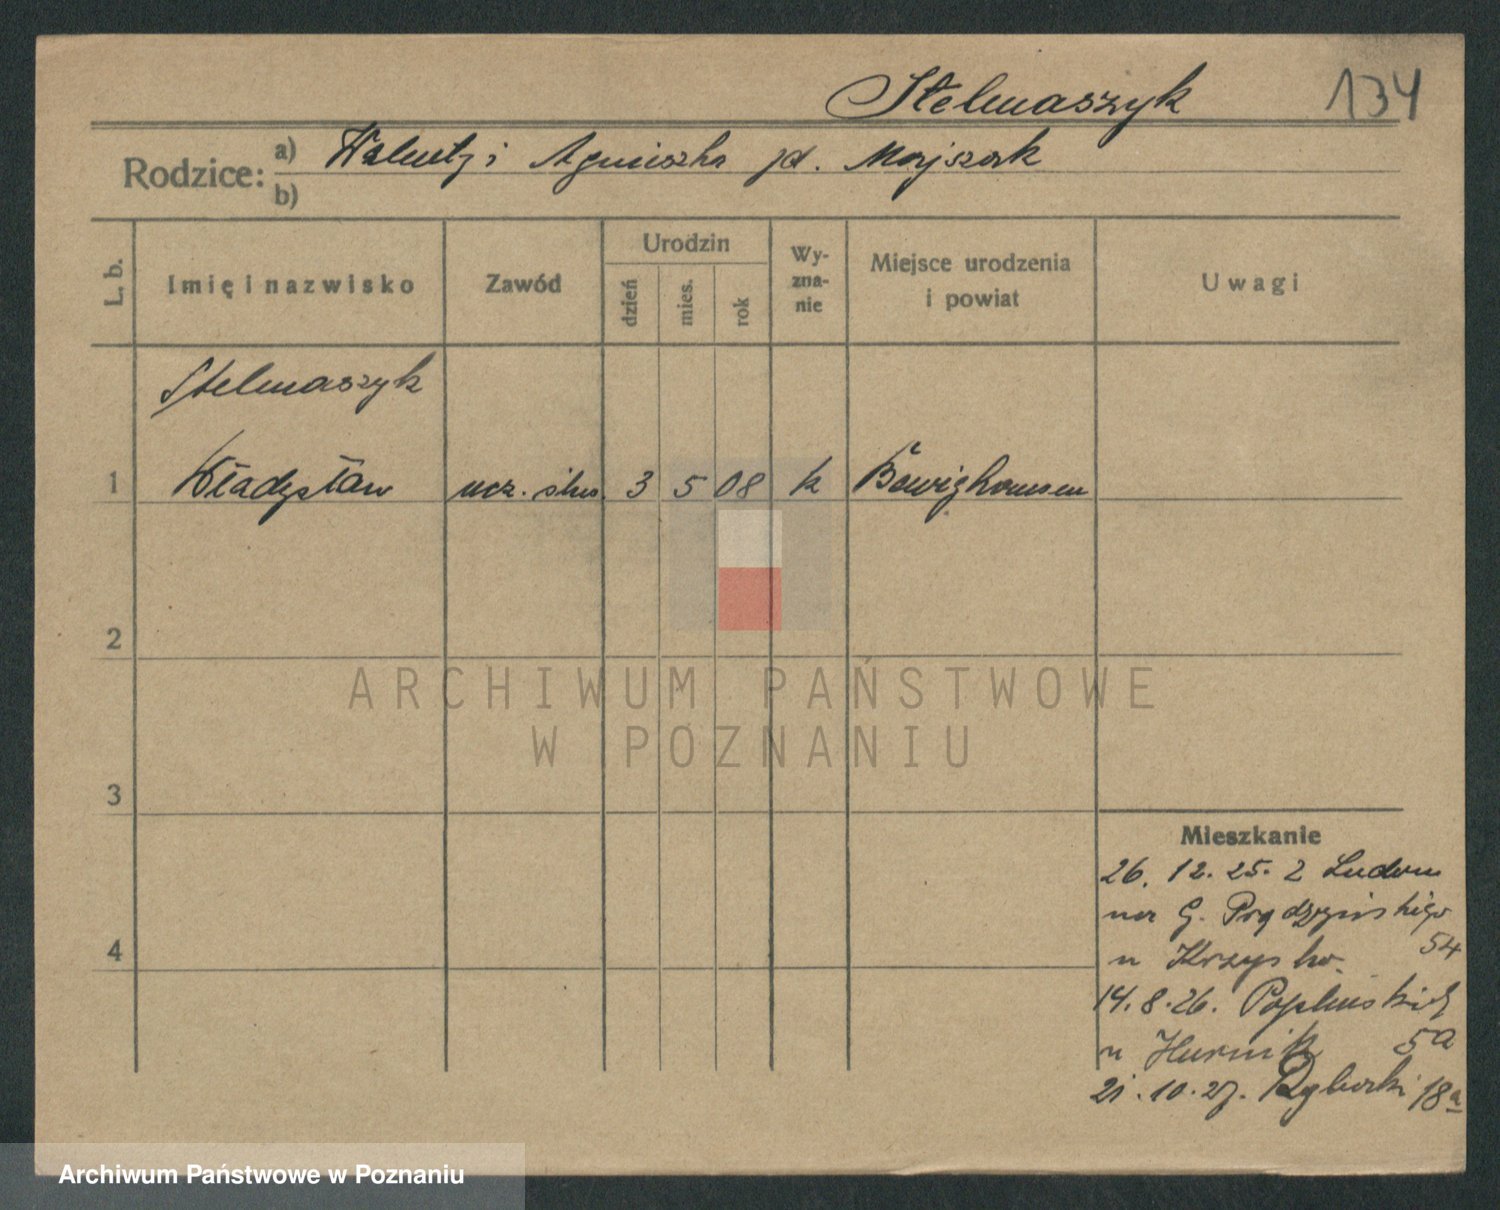 Stelmaszyk 134
Rodzice: a) Walenty i Agnieszka zd. Majszak
b)
L. b. Imię i nazwisko Zawód Urodzin dzień mies. rok Wyznanie Miejsce urodzenia i powiat Uwagi
Stelmaszyk
1 Władysław ucz. ślus. 3 5 08 k
2
ARCHIWUM PAŃSTWOWE
W POZNANIU
3
Mieszkanie
26. 12. 25. z Ludom
na G. Prądzyńskiego
54
4 u
14. 8. 26. Poplińskich
u Hurnik 5a
21. 10. 27. Rybaki 18a
Archiwum Państwowe w Poznaniu